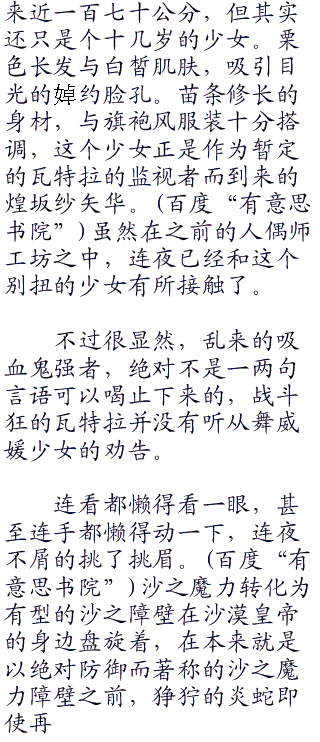 来近一百七十公分，但其实
还只是个十几岁的少女。栗
色长发与白皙肌肤，吸引目
光的婥约脸孔。苗条修长的
身材，与旗袍风服装十分搭
调，这个少女正是作为暂定
的瓦特拉的监视者而到来的
煌坂纱矢华。(百度“有意思
书院”)虽然在之前的人偶师
工坊之中，连夜已经和这个
别扭的少女有所接触了。
不过很显然，乱来的吸
血鬼强者，绝对不是一两句
言语可以喝止下来的，战斗
狂的瓦特拉并没有听从舞威
媛少女的劝告。
连看都懒得看一眼，甚
至连手都懒得动一下，连夜
不屑的挑了挑眉。(百度“有
意思书院”)沙之魔力转化为
有型的沙之障壁在沙漠皇帝
的身边盘旋着，在本来就是
以绝对防御而著称的沙之魔
力障壁之前，狰狞的炎蛇即
使再